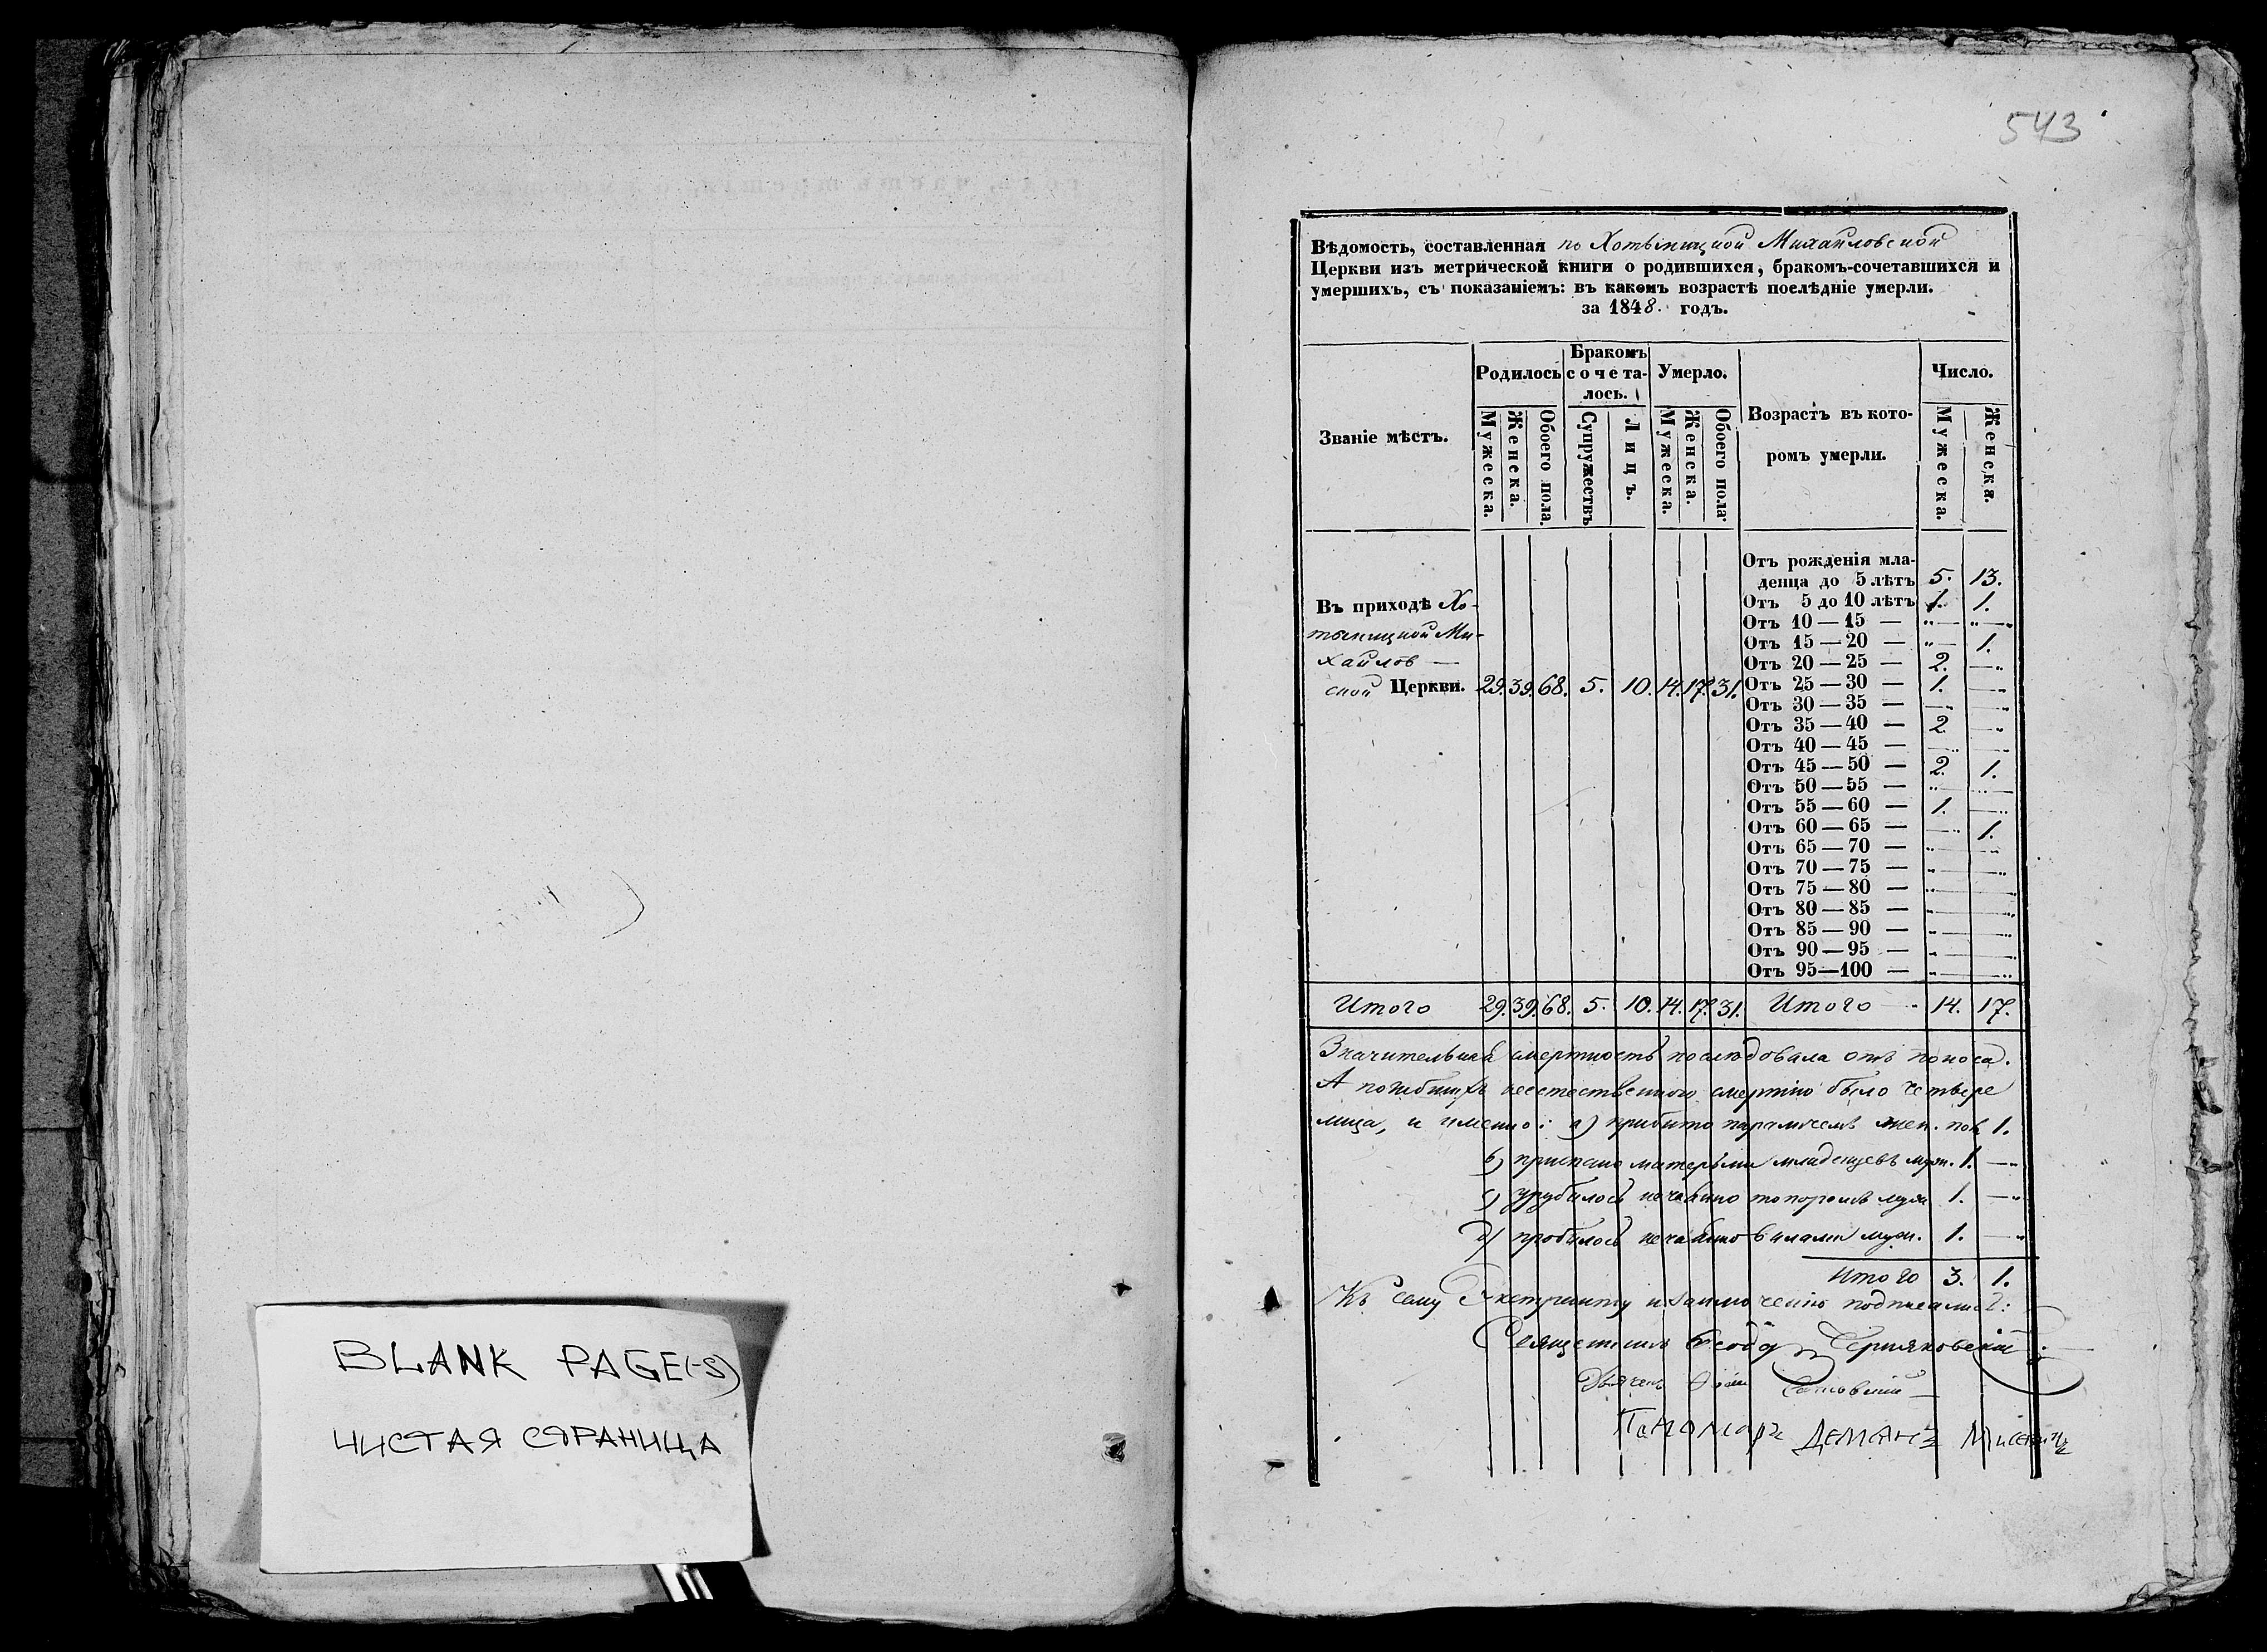 BLANK PAGE(-S)
ЧИСТАЯ СТРАНИЦА
543
Вѣдомость, составленная по Хотыницкой Михайловской
Церкви изъ метрической книги о родившихся, бракомъ-сочетавшихся и
умершихъ, съ показаніемъ: въ какомъ возрастѣ послѣдніе умерли.
за 1848. годъ.
Званіе мѣстъ.
Родилось
Бракомъ
сочета-
лось.
Умерло.
Возрастъ въ кото-
ромъ умерли.
Число.
Мужеска.
Женска.
Обоего пола.
Супружествъ
Лицъ.
Мужеска.
Женска.
Обоего пола.
Мужеска.
Женска.
Въ приходѣ Хо-
тыницкой Ми-
хайлов —
ской Церкви. 29. 39. 68. 5. 10. 14. 17. 31.
Отъ рожденія мла-
денца до 5 лѣтъ 5. 13.
Отъ 5 до 10 лѣтъ 1. 1.
Отъ 10 — 15 — „— „—„
Отъ 15 — 20 — „— 1.
Отъ 20 — 25 — 2. —„
Отъ 25 — 30 — 1. —„
Отъ 30 — 35 — —„ —„
Отъ 35 — 40 — 2 —„
Отъ 40 — 45 — —„ —„
Отъ 45 — 50 — 2. 1.
Отъ 50 — 55 — „— „—
Отъ 55 — 60 — 1. —„
Отъ 60 — 65 — —„ 1.
Отъ 65 — 70 — „— —„
Отъ 70 — 75 — „— —„
Отъ 75 — 80 — „— —„
Отъ 80 — 85 — „— —„
Отъ 85 — 90 — „— —„
Отъ 90 — 95 — „— —„
Отъ 95—100 — „— —„
Итого 29. 39. 68. 5. 10. 14. 17. 31. Итого — 14. 17.
Значительная смертность послѣдовала отъ поноса.
А погибшихъ неестественною смертію было четвере
лица, и именно: а) прибито жен. пол. 1.
b) приспано матерьми младенцевъ муж. 1. —„
c) урубилось нечаянно топоромъ муж 1. —„
d) пробилось нечаянно вилами муж. 1. —„
Итого 3. 1.
Къ сему Экстракту и заключенію подписались:
Священникъ Черняковскій
Дьячекъ
Пономарь Демянъ